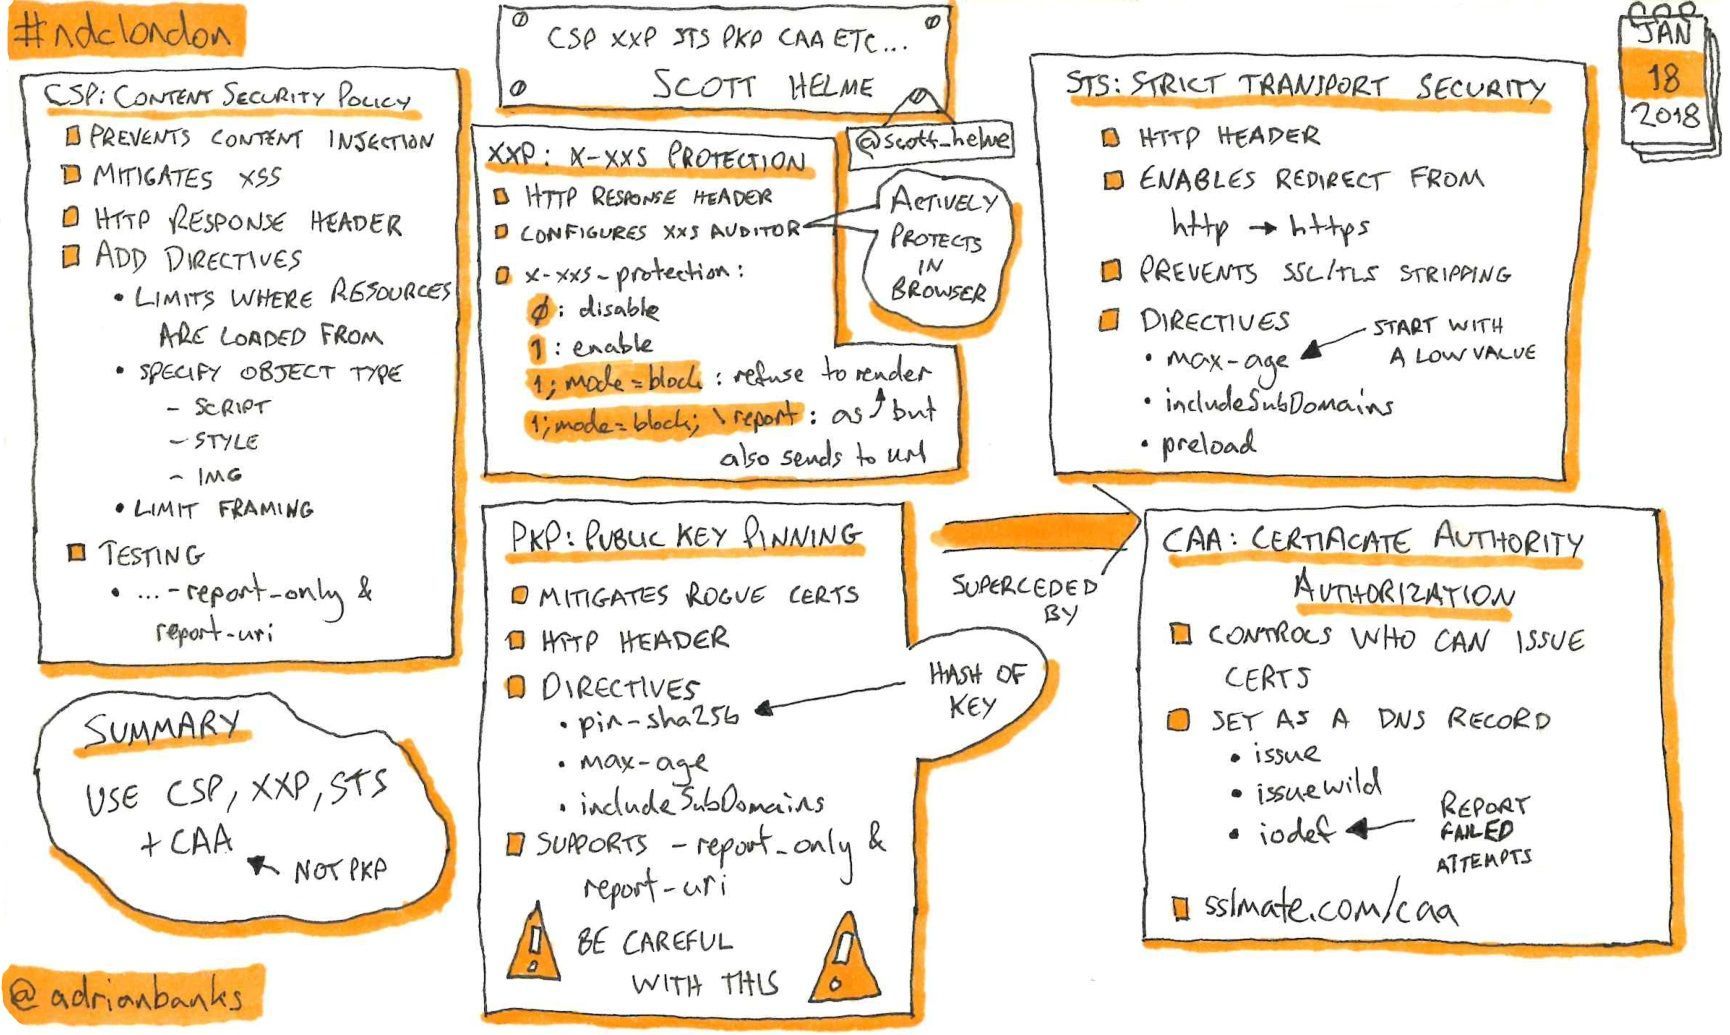 #ndclondon
CSP XXP STS PKP CAA ETC...
SCOTT HELME
@scott_helme
JAN
18
2018
CSP: CONTENT SECURITY POLICY
PREVENTS CONTENT INJECTION
MITIGATES XSS
HTTP RESPONSE HEADER
ADD DIRECTIVES
• LIMITS WHERE RESOURCES
ARE LOADED FROM
• SPECIFY OBJECT TYPE
- SCRIPT
- STYLE
- IMG
• LIMIT FRAMING
TESTING
• ...-report-only &
report-uri
XXP: X-XXS PROTECTION
HTTP RESPONSE HEADER
CONFIGURES XXS AUDITOR
ACTIVELY
PROTECTS
IN
BROWSER
x-xxs-protection:
0: disable
1: enable
1; mode=block: refuse to render
1; mode=block; \report: as but
also sends to url
STS: STRICT TRANSPORT SECURITY
HTTP HEADER
ENABLES REDIRECT FROM
http → https
PREVENTS SSL/TLS STRIPPING
DIRECTIVES
• max-age
START WITH
A LOW VALUE
• includeSubDomains
• preload
PKP: PUBLIC KEY PINNING
MITIGATES ROGUE CERTS
HTTP HEADER
DIRECTIVES
• pin-sha256
HASH OF
KEY
• max-age
• includeSubDomains
SUPPORTS -report-only &
report-uri
BE CAREFUL
WITH THIS
SUPERCEDED
BY
CAA: CERTIFICATE AUTHORITY
AUTHORIZATION
CONTROLS WHO CAN ISSUE
CERTS
SET AS A DNS RECORD
• issue
• issuewild
• iodef
REPORT
FAILED
ATTEMPTS
sslmate.com/caa
SUMMARY
USE CSP, XXP, STS
+ CAA
NOT PKP
@adrianbanks